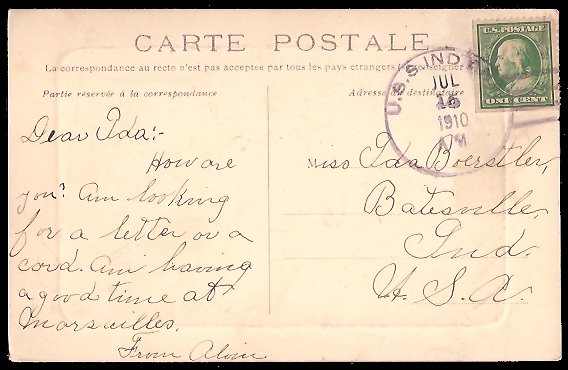 CARTE POSTALE
La correspondance au recto n'est pas acceptée par tous les pays étrangers
Partie réservée à la correspondance
Adresse du destinataire
U.S. POSTAGE
ONE CENT
U.S.S. IND
JUL
16
1910
AM
Dear Ida:-
How are
you? Am looking
for a letter or a
card. Am having
a good time at
Marseilles.
From Alvin
Miss Ida Boerstler,
Batesville,
Ind.
U. S. A.